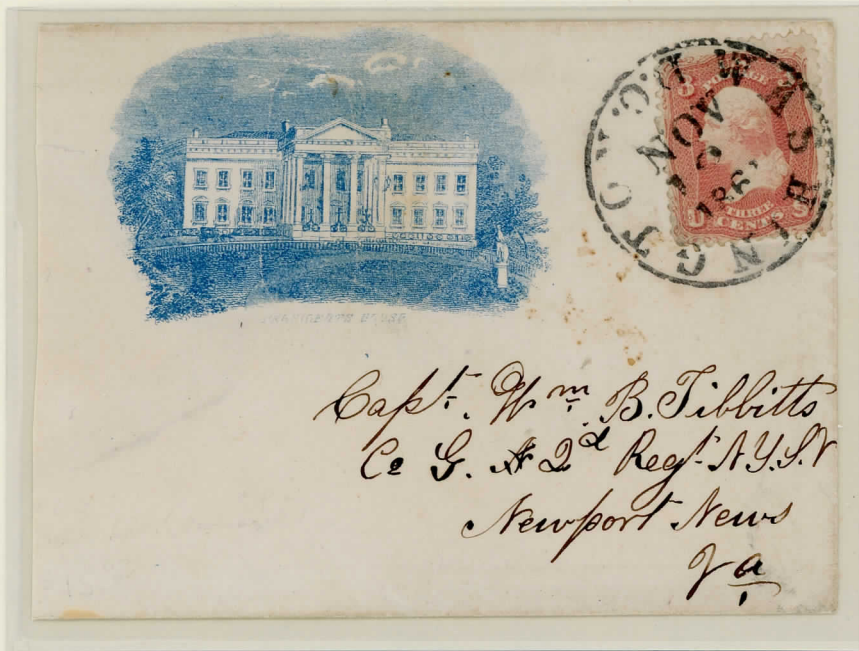 WASHINGTON D.C.
NOV
186
3 POSTAGE
THREE
CENTS
PRESIDENTS HOUSE
Capt. Wm. B. Tibbitts
Co G. 2d Regt. N.Y.S.V
Newport News
Va